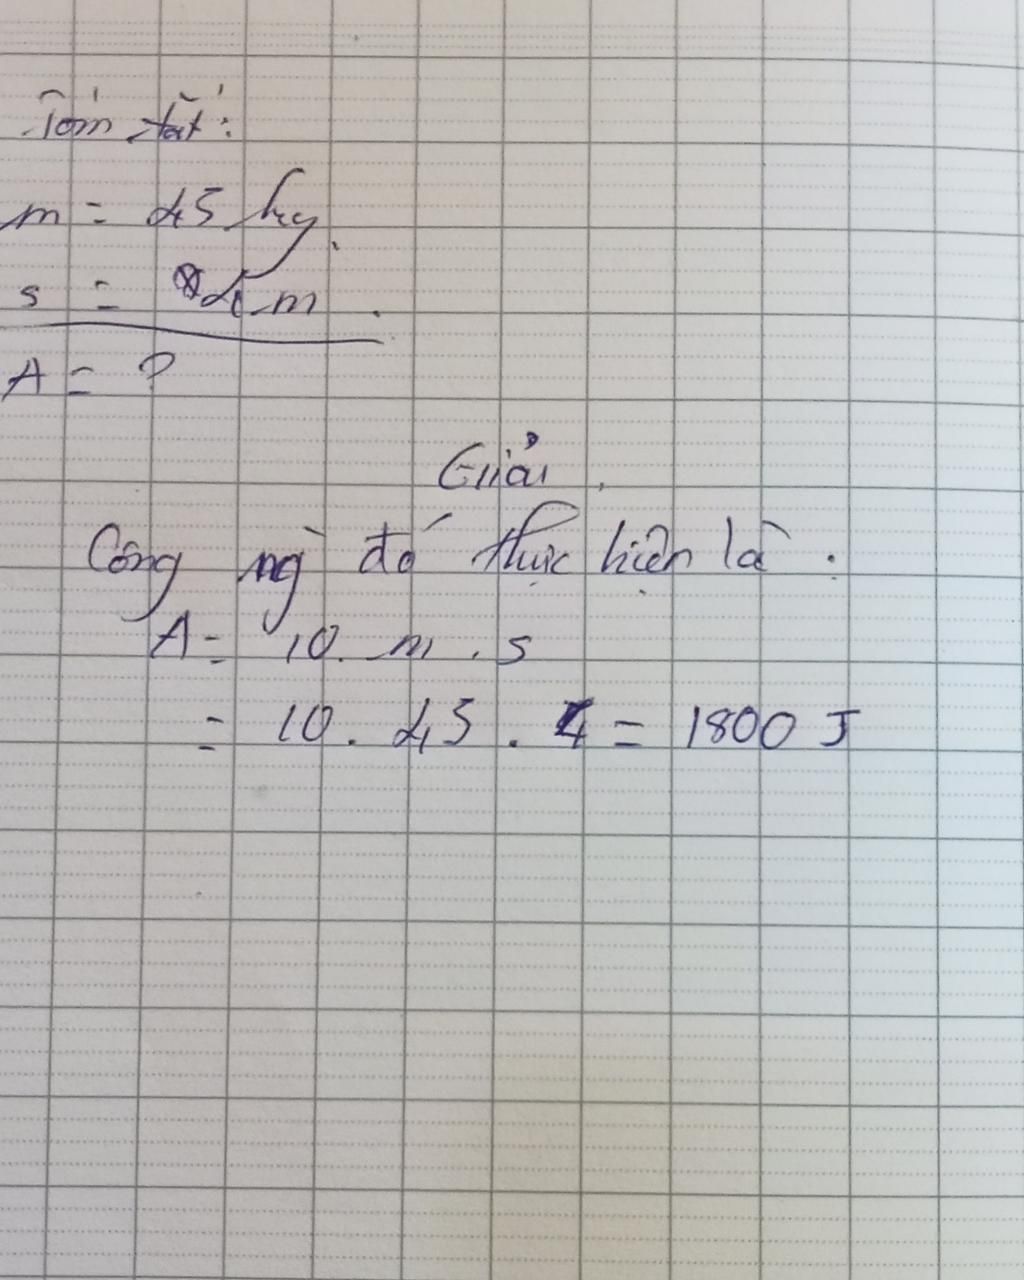 Tóm tắt:
m = 45 kg.
s = 4 m.
A = ?
Giải.
Công ng` đó thực hiện là:
A = 10. m . s
= 10 . 45 . 4 = 1800 J